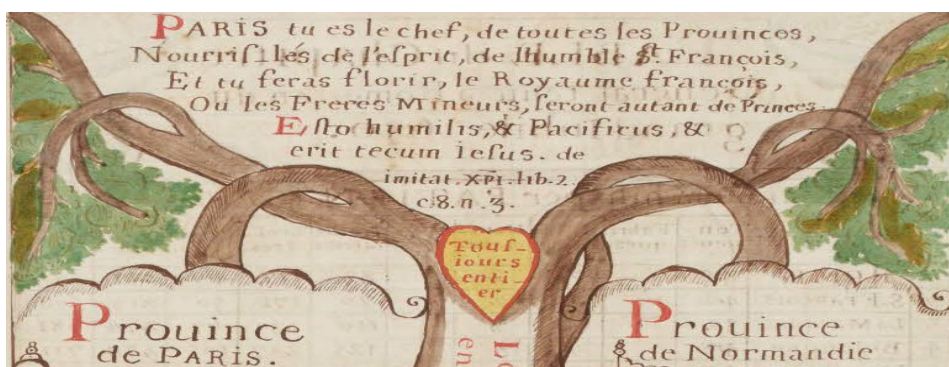 PARIS tu es le chef, de toutes les Prouinces,
Nourris_lés de l'esprit, de l'humble St. François,
Et tu feras florir, le Royaume françois,
Ou les Freres Mineurs, seront autant de Princes.
Esto humilis, & Pacificus, &
erit tecum iesus. de
imitat. XPI. lib. 2.
c. 8. n. 3.
Tous_
iours
enti_
er
Prouince
de PARIS.
Prouince
de Normandie